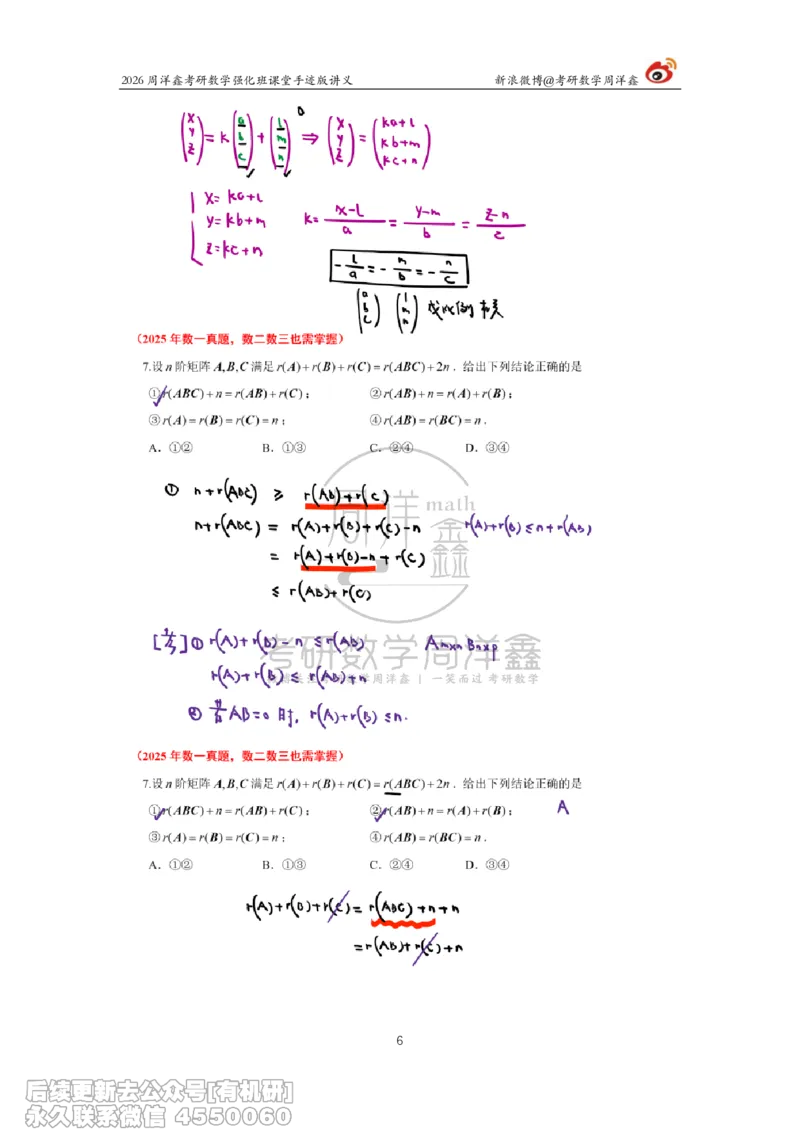 2026 周洋鑫考研数学强化班课堂手迹版讲义 新浪微博@考研数学周洋鑫
(x y z) = k (a b c) + (l m n) ⇒ (x y z) = (ka+l kb+m kc+n)
a
x=ka+l
y=kb+m
z=kc+n
k= (x-l)/a = (y-m)/b = (z-n)/c
-l/a = -m/b = -n/c
(a b c) (l m n) 成比例
(2025 年数一真题，数二数三也需掌握)
7.设 n 阶矩阵 A,B,C 满足 r(A)+r(B)+r(C)=r(ABC)+2n．给出下列结论正确的是
①r(ABC)+n=r(AB)+r(C)； ②r(AB)+n=r(A)+r(B)；
③r(A)=r(B)=r(C)=n； ④r(AB)=r(BC)=n．
A．①② B．①③ C．②④ D．③④
① n+r(ABC) ≥ r(AB)+r(C)
n+r(ABC) = r(A)+r(B)+r(C)-n r(A)+r(B)≤n+r(AB)
= r(A)+r(B)-n + r(C)
≤ r(AB)+r(C)
周洋鑫 math
[考]① r(A)+r(B)-n ≤r(AB) Am×n Bn×p
考研数学周洋鑫
r(A)+r(B) ≤ r(AB)+n
学周洋鑫 | 一笑而过 考研数学
② 若AB=0时, r(A)+r(B) ≤n.
(2025 年数一真题，数二数三也需掌握)
7.设 n 阶矩阵 A,B,C 满足 r(A)+r(B)+r(C)=r(ABC)+2n．给出下列结论正确的是
①r(ABC)+n=r(AB)+r(C)； ②r(AB)+n=r(A)+r(B)； A
③r(A)=r(B)=r(C)=n； ④r(AB)=r(BC)=n．
A．①② B．①③ C．②④ D．③④
r(A)+r(B)+r(C)= r(ABC)+n+n
=r(AB)+r(C)+n
6
后续更新去公众号[有机研]
永久联系微信 4550060